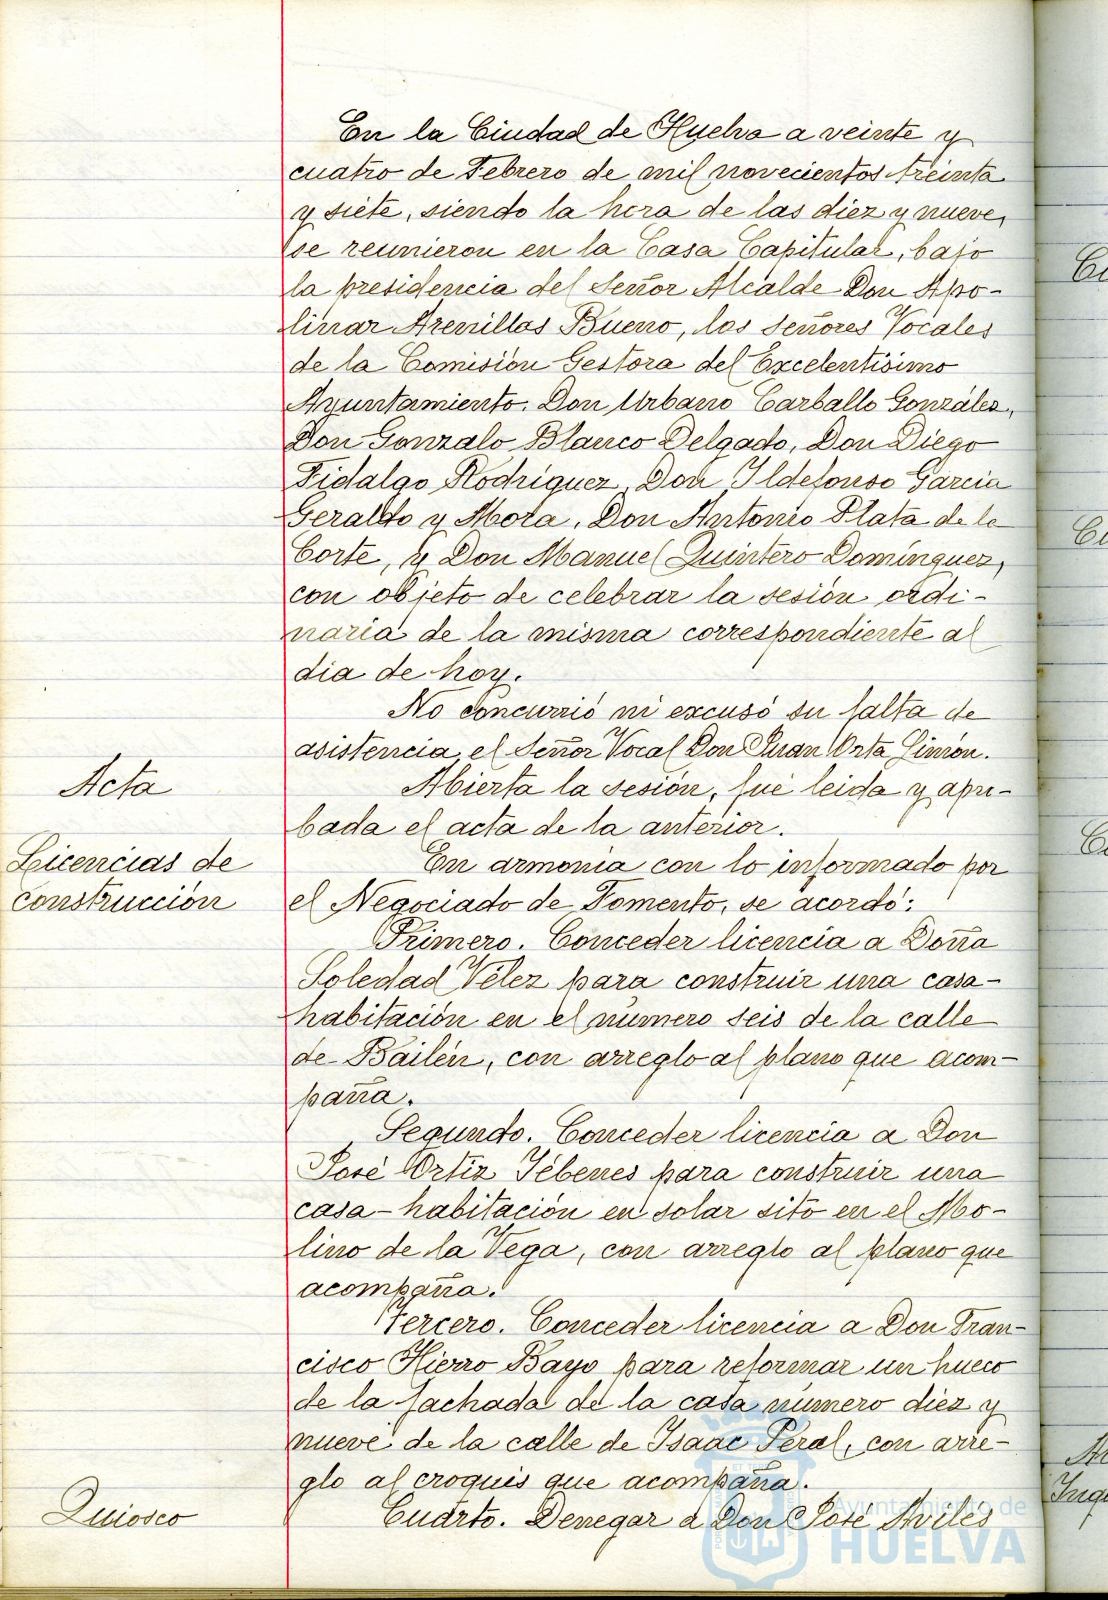 En la Ciudad de Huelva a veinte y
cuatro de Febrero de mil novecientos treinta
y siete, siendo la hora de las diez y nueve,
se reunieron en la Casa Capitular, bajo
la presidencia del Señor Alcalde Don Apo-
linar Arenillas Bueno, los señores Vocales
de la Comisión Gestora del Excelentísimo
Ayuntamiento, Don Urbano Carballo González,
Don Gonzalo Blanco Delgado, Don Diego
Fidalgo Rodríguez, Don Ildefonso García
Geraldo y Mora, Don Antonio Plata de la
Corte, y Don Manuel Quintero Domínguez,
con objeto de celebrar la sesión ordi-
naria de la misma correspondiente al
dia de hoy.
No concurrió ni excusó su falta de
asistencia el Señor Vocal Don Juan Orta
Acta
Abierta la sesión, fué leida y apro-
bada el acta de la anterior.
Licencias de
construcción
En armonia con lo informado por
el Negociado de Fomento, se acordó:
Primero. Conceder licencia a Doña
Soledad Vélez para construir una casa-
habitación en el número seis de la calle
de Bailén, con arreglo al plano que acom-
paña.
Segundo. Conceder licencia a Don
José Ortiz Tébenes para construir una
casa-habitación en solar sito en el Mo-
lino de la Vega, con arreglo al plano que
acompaña.
Tercero. Conceder licencia a Don Fran-
cisco Hierro Bayo para reformar un hueco
de la fachada de la casa número diez y
nueve de la calle de Isaac Peral, con arre-
glo al croquis que acompaña.
Quiosco
Cuarto. Denegar a Don José Avilés
Ayuntamiento de
HUELVA